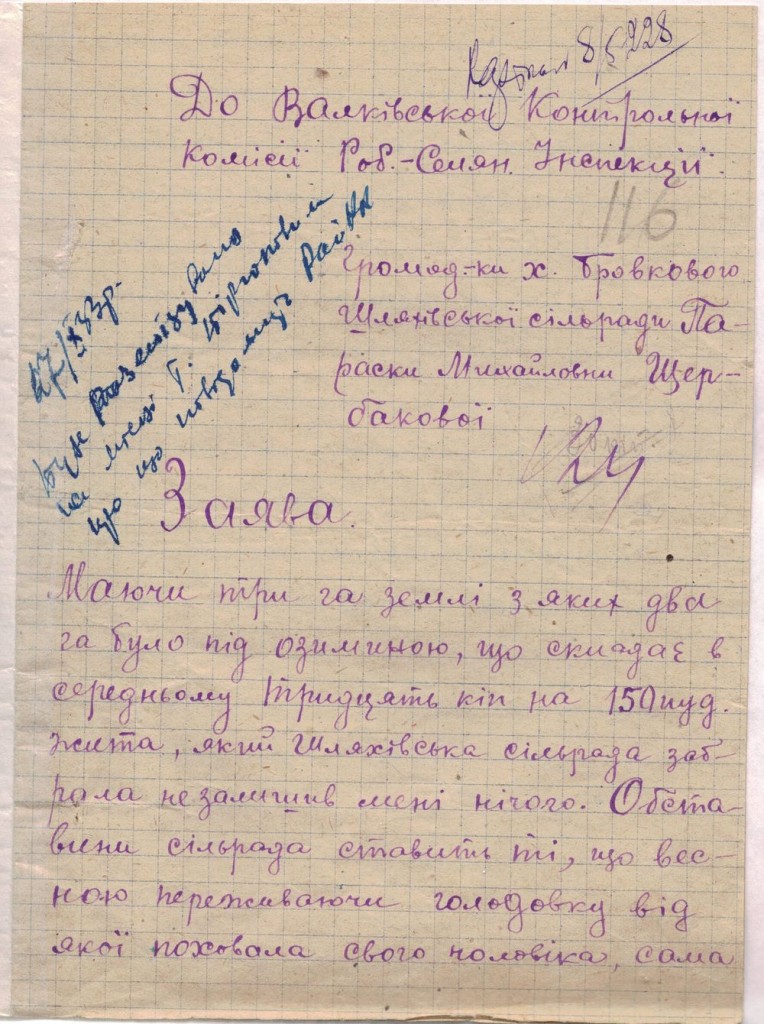 8/5 228
До Валківської Контрольної
Комісії Роб.-Селян. Інспекції.
116
Громад-ки х. Бровкового
Шляхівської сільради Па-
раски Михайловни Щер-
бакової
27/X 33р.
на місці т.
що повідомить РайКК
Заява.
Маючи три га землі з яких два
га було під озиминою, що складає в
середньому тридцять кіп на 150 пуд.
жита, який Шляхівська сільрада заб-
рала незалишив мені нічого. Обста-
вини сільрада ставить ті, що вес-
ною переживаючи голодовку від
якої поховала свого чоловіка, сама